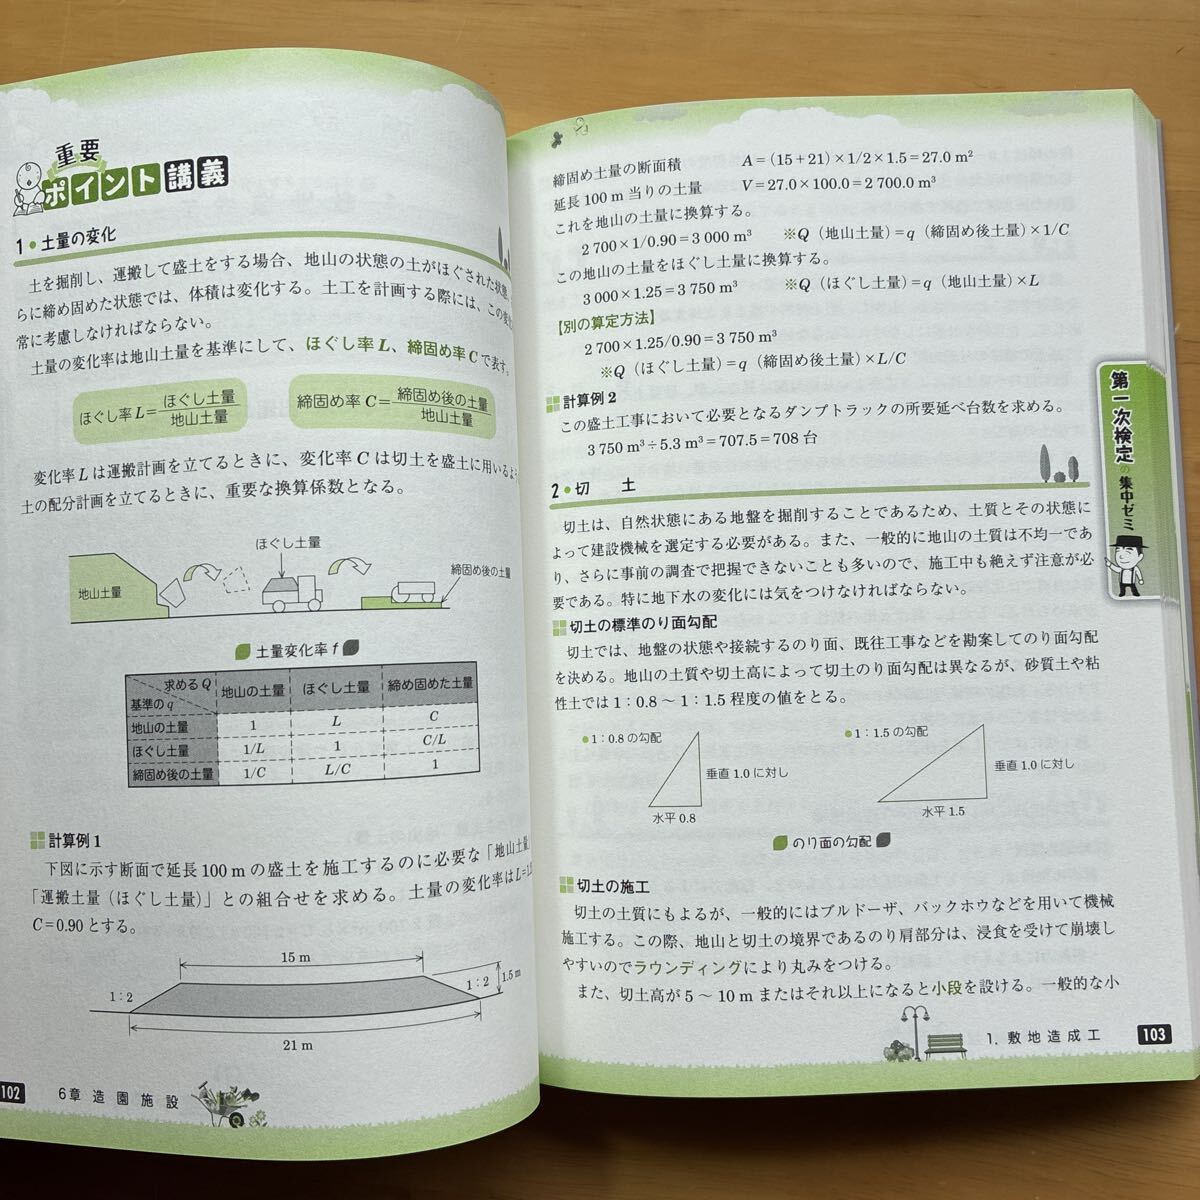 重要
ポイント講義
1・土量の変化
土を掘削し、運搬して盛土をする場合、地山の状態の土がほぐされた状態、
らに締め固めた状態では、体積は変化する。土工を計画する際には、この変
常に考慮しなければならない。
土量の変化率は地山土量を基準にして、ほぐし率L、締固め率Cで表す。
ほぐし率L=ほぐし土量/地山土量
締固め率C=締固め後の土量/地山土量
変化率Lは運搬計画を立てるときに、変化率Cは切土を盛土に用いる
土の配分計画を立てるときに、重要な換算係数となる。
ほぐし土量
地山土量
締固め後の土量
土量変化率 f
求めるQ 地山の土量 ほぐし土量 締め固めた土量
基準のq
地山の土量 1 L C
ほぐし土量 1/L 1 C/L
締固め後の土量 1/C L/C 1
計算例1
下図に示す断面で延長100 mの盛土を施工するのに必要な「地山土量
「運搬土量(ほぐし土量)」との組合せを求める。土量の変化率はL=1.
C=0.90とする。
15 m
1:2
1:2
1.5m
21 m
102
6章 造園施設
締固め土量の断面積 A=(15+21)×1/2×1.5=27.0 m²
延長100 m当りの土量 V=27.0×100.0=2 700.0 m³
これを地山の土量に換算する。
2 700×1/0.90=3 000 m³ ※Q(地山土量)=q(締固め後土量)×1/C
この地山の土量をほぐし土量に換算する。
3 000×1.25=3 750 m³ ※Q(ほぐし土量)=q(地山土量)×L
【別の算定方法】
2 700×1.25/0.90=3 750 m³
※Q(ほぐし土量)=q(締固め後土量)×L/C
計算例2
この盛土工事において必要となるダンプトラックの所要延べ台数を求める。
3 750 m³÷5.3 m³=707.5=708 台
2・切 土
切土は、自然状態にある地盤を掘削することであるため、土質とその状態に
よって建設機械を選定する必要がある。また、一般的に地山の土質は不均一であ
り、さらに事前の調査で把握できないことも多いので、施工中も絶えず注意が必
要である。特に地下水の変化には気をつけなければならない。
切土の標準のり面勾配
切土では、地盤の状態や接続するのり面、既往工事などを勘案してのり面勾配
を決める。地山の土質や切土高によって切土のり面勾配は異なるが、砂質土や粘
性土では1:0.8～1:1.5程度の値をとる。
●1:0.8の勾配
垂直1.0に対し
水平0.8
●1:1.5の勾配
垂直1.0に対し
水平1.5
のり面の勾配
切土の施工
切土の土質にもよるが、一般的にはブルドーザ、バックホウなどを用いて機械
施工する。この際、地山と切土の境界であるのり肩部分は、浸食を受けて崩壊し
やすいのでラウンディングにより丸みをつける。
また、切土高が5～10 mまたはそれ以上になると小段を設ける。一般的な小
1. 敷地造成工
103
第一次検定の集中ゼミ